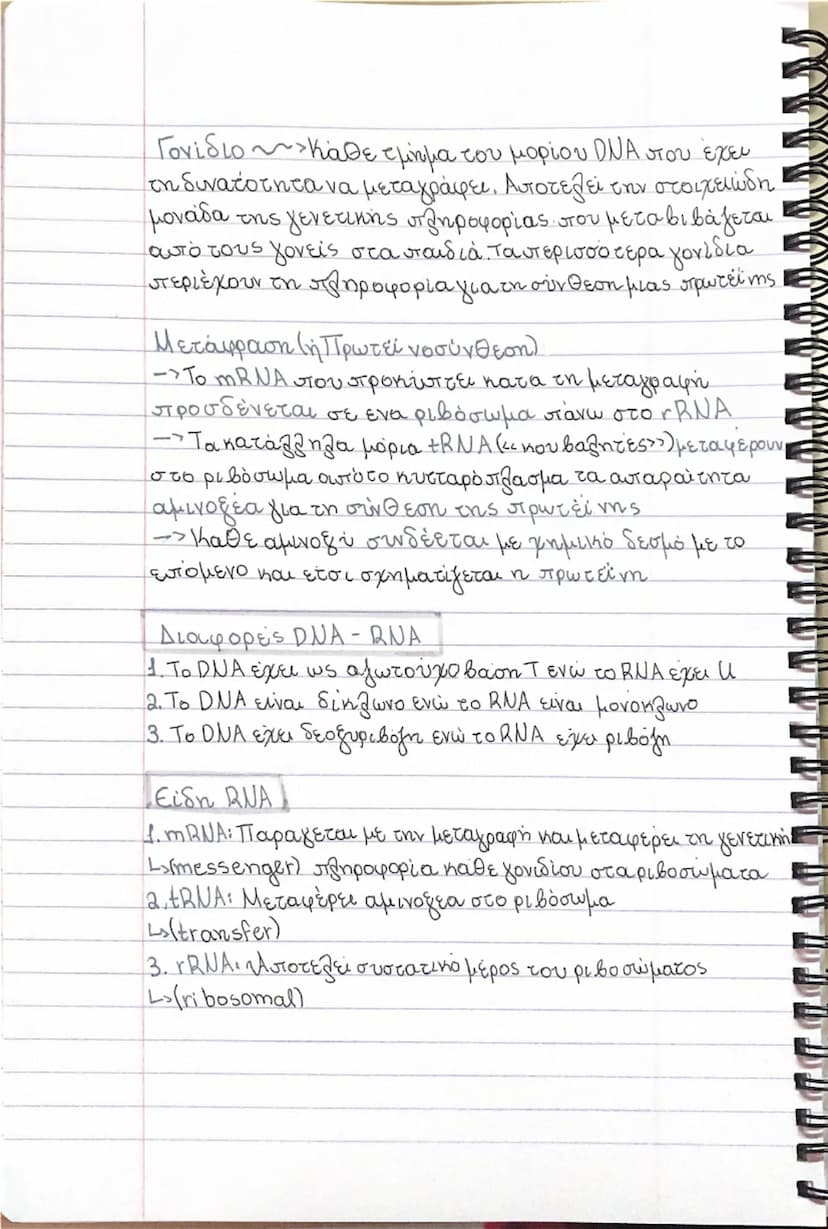 Γονίδιο ~~> Κάθε τμήμα του μορίου DNA που έχει
τη δυνατότητα να μεταγράφει. Αποτελεί την στοιχειώδη
μονάδα της γενετικής πληροφορίας που μεταβιβάζεται
από τους γονείς στα παιδιά. Τα περισσότερα γονίδια
περιέχουν τη πληροφορία για τη σύνθεση μιας πρωτεΐνης
Μετάφραση (ή Πρωτεϊνοσύνθεση)
-> Το mRNA που προκύπτει κατα τη μεταγραφή
προσδένεται σε ενα ριβόσωμα πάνω στο rRNA
-> Τα κατάλληλα μόρια tRNA (<<κουβαλητές>>) μεταφέρουν
στο ριβόσωμα από το κυτταρόπλασμα τα απαραίτητα
αμινοξέα για τη σύνθεση της πρωτεΐνης
-> Καθε αμινοξύ συνδέεται με χημικό δεσμό με το
επόμενο και ετσι σχηματίζεται η πρωτεΐνη
Διαφορές DNA - RNA
1. Το DNA έχει ως αζωτούχο βαση Τ ενώ το RNA έχει U
2. Το DNA είναι δίκλωνο ενώ το RNA είναι μονόκλωνο
3. Το DNA έχει δεοξυριβόζη ενώ το RNA έχει ριβόζη
Είδη RNA
1. mRNA: Παραγεται με την μεταγραφή και μεταφέρει τη γενετική
↳(messenger) πληροφορία κάθε γονιδίου στα ριβοσώματα
2. tRNA: Μεταφέρει αμινοξεα στο ριβόσωμα
↳(transfer)
3. rRNA: Αποτελεί συστατικό μέρος του ριβοσώματος
↳(ribosomal)